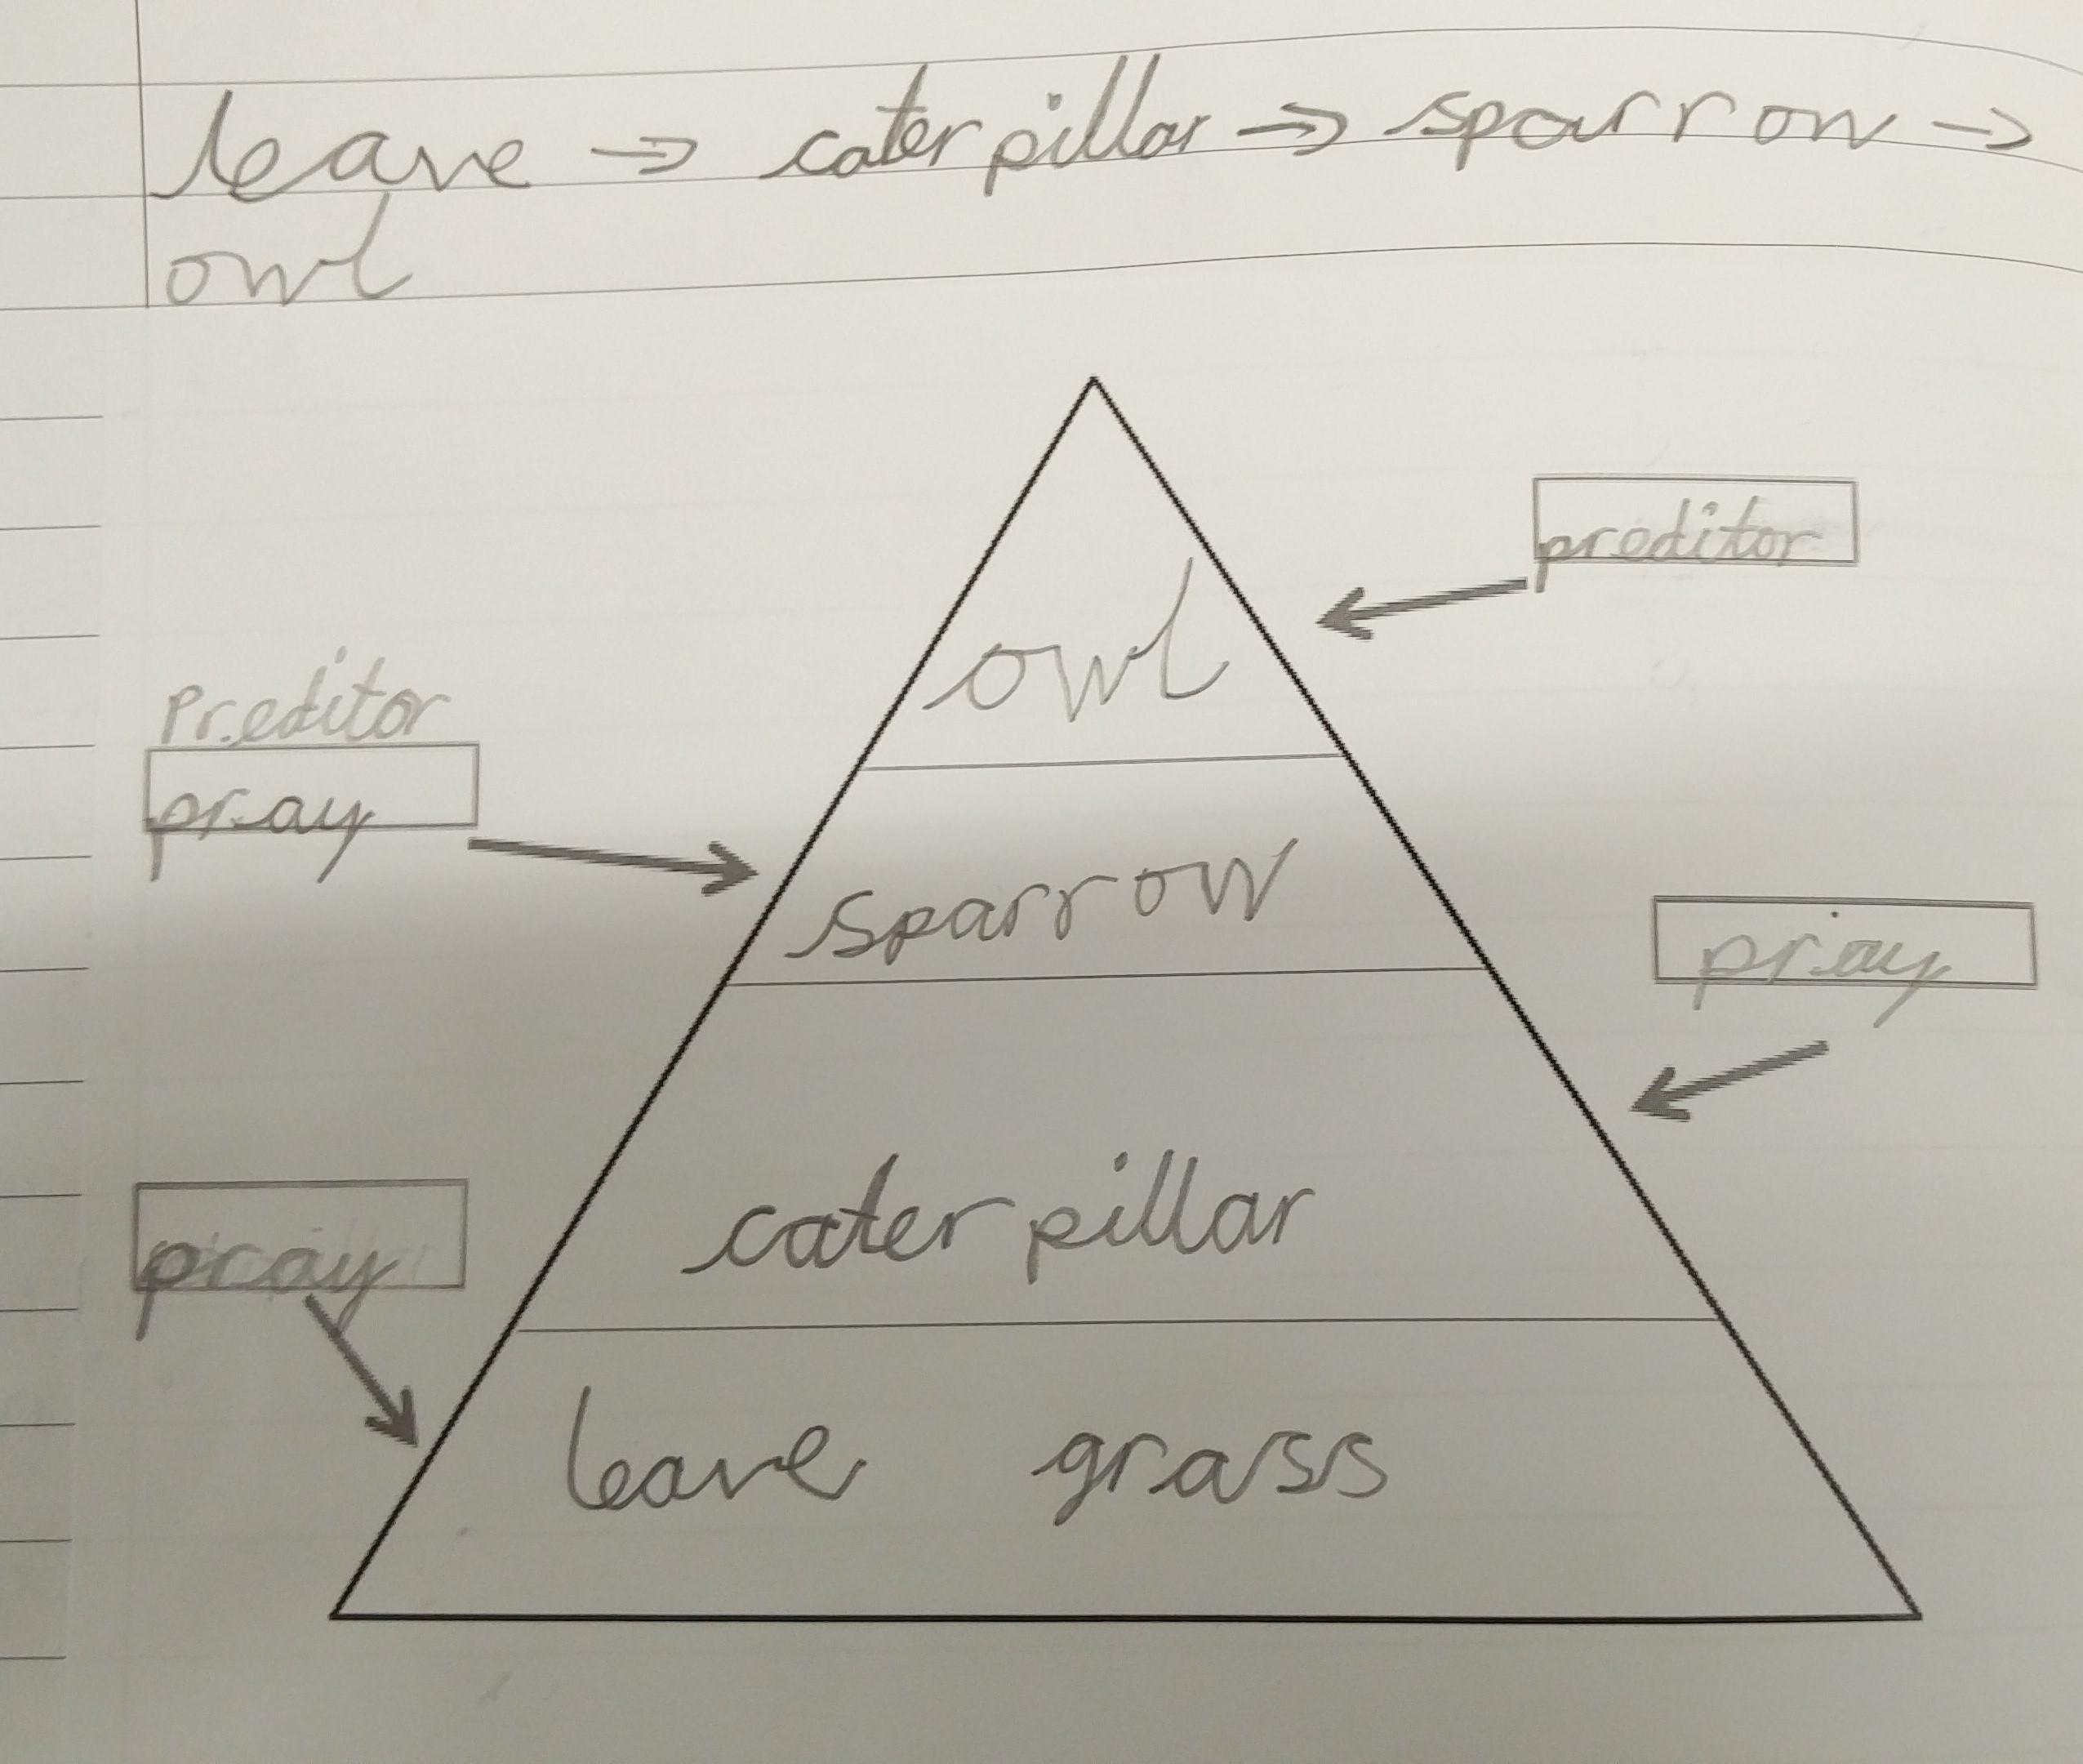 leave → caterpillar → sparrow →
owl
preditor
owl
Preditor
pray
sparrow
pray
caterpillar
pray
leave grass